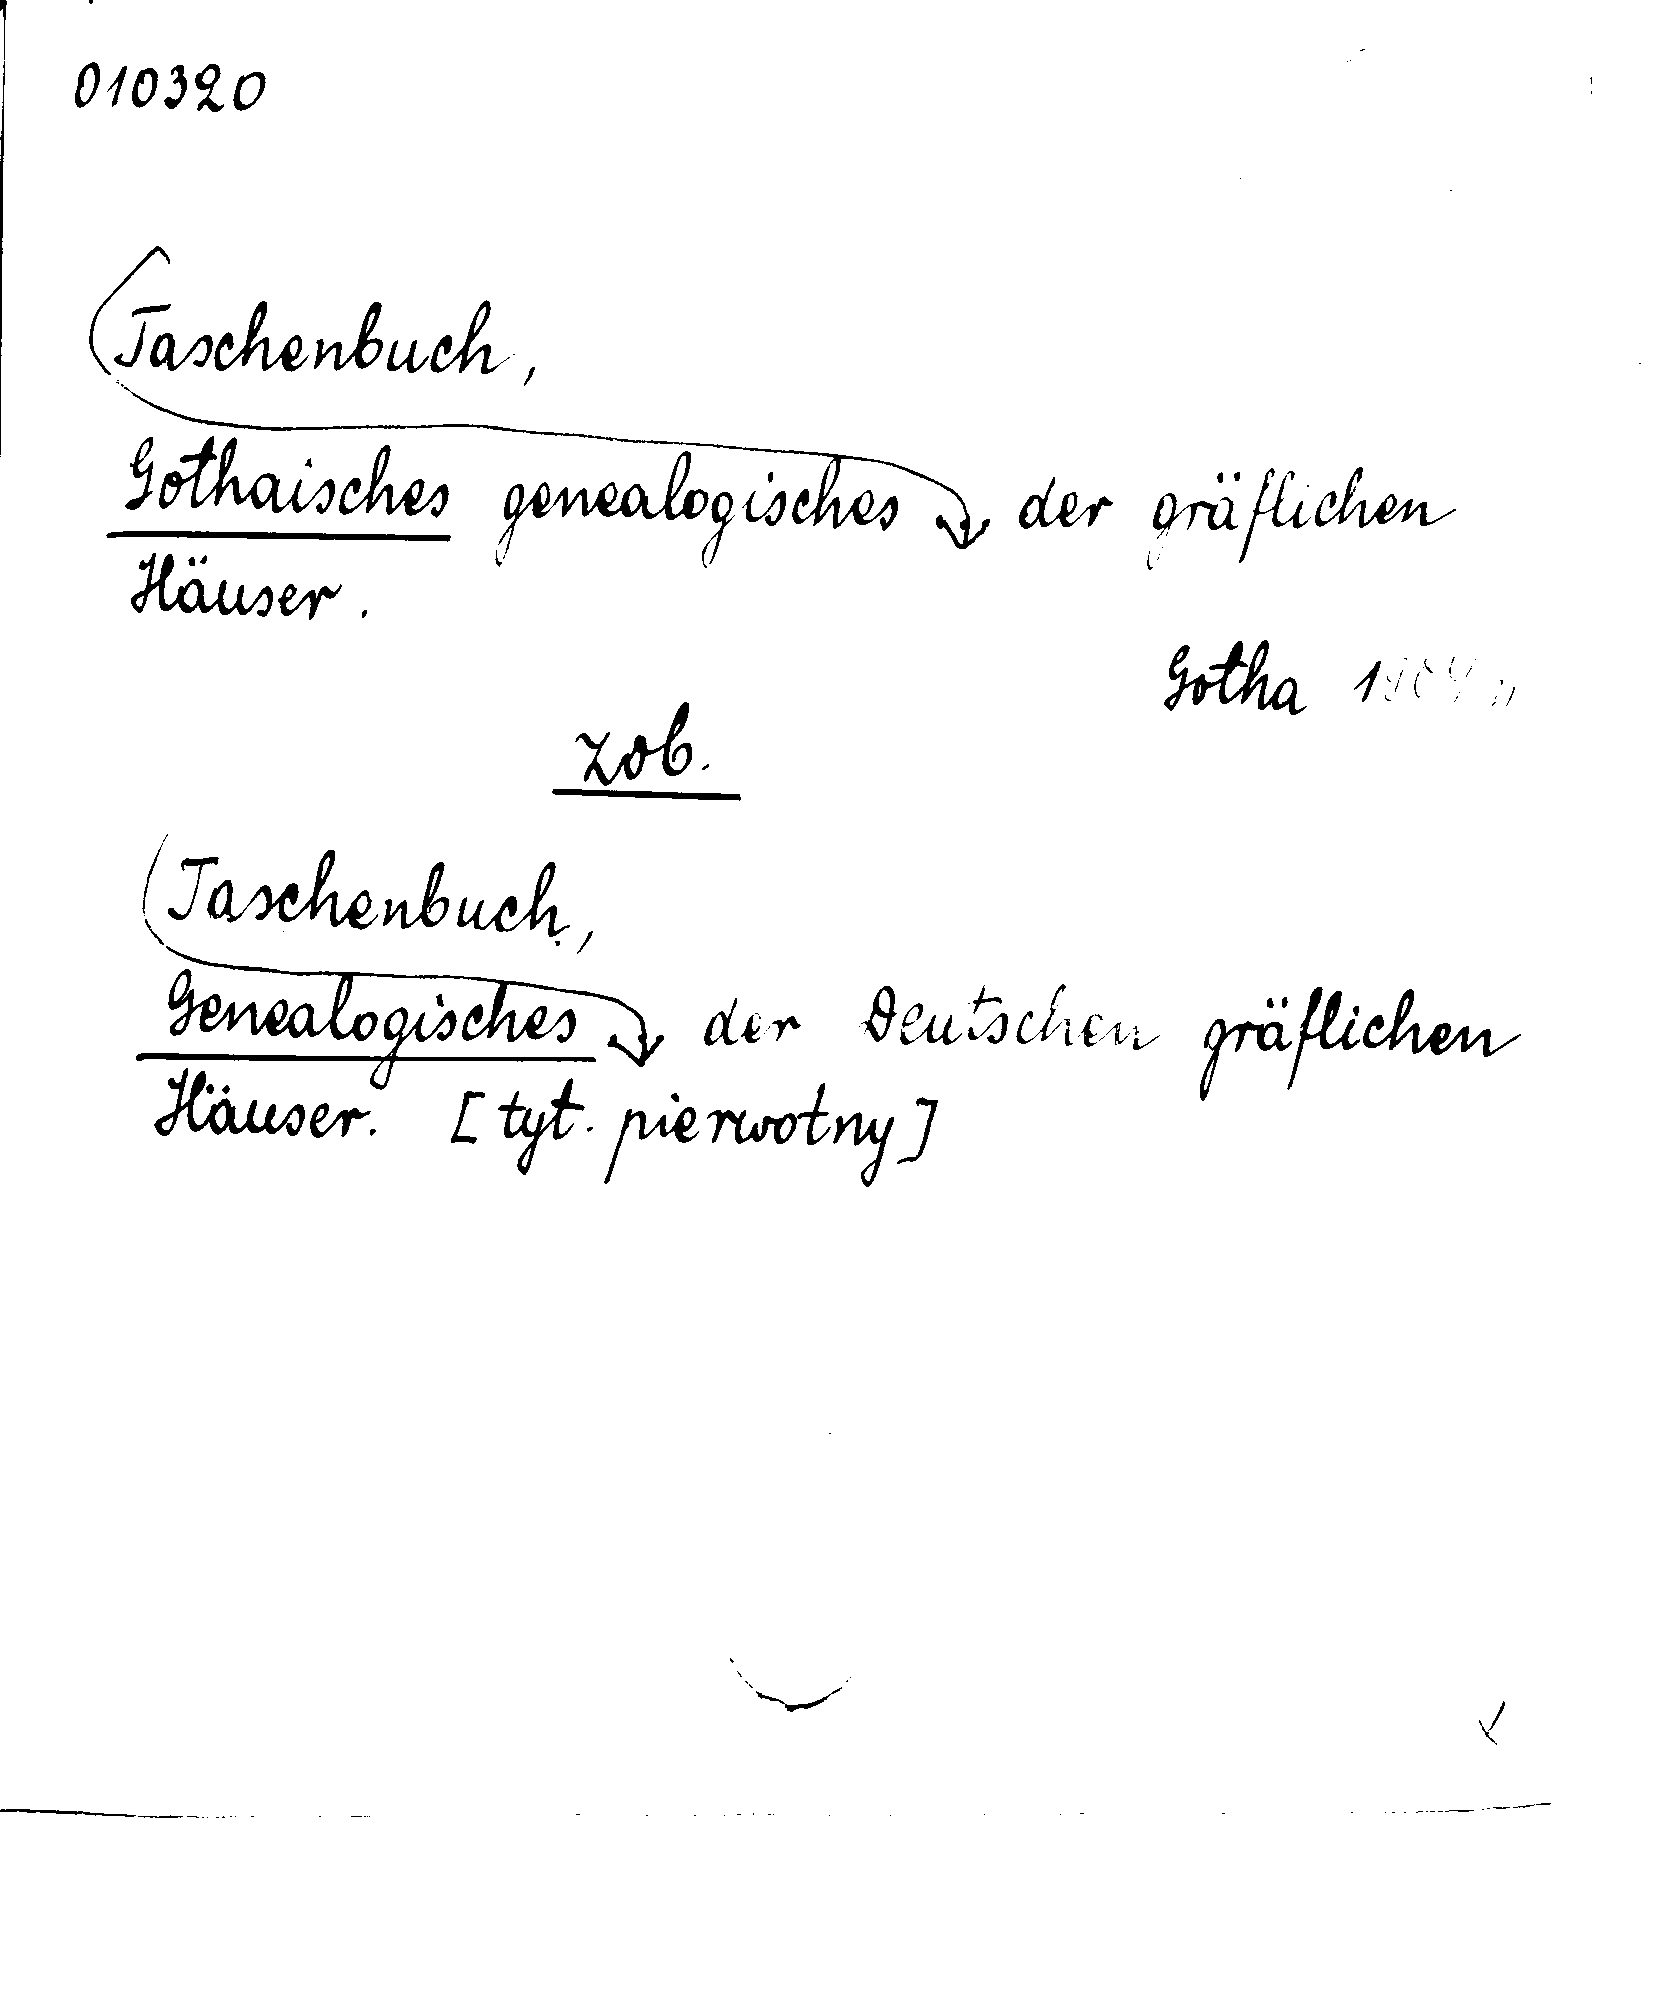 010320
Taschenbuch,
Gothaisches genealogisches der gräflichen
Häuser.
Gotha
zob.
Taschenbuch,
Genealogisches der Deutschen gräflichen
Häuser. [tyt. pierwotny]